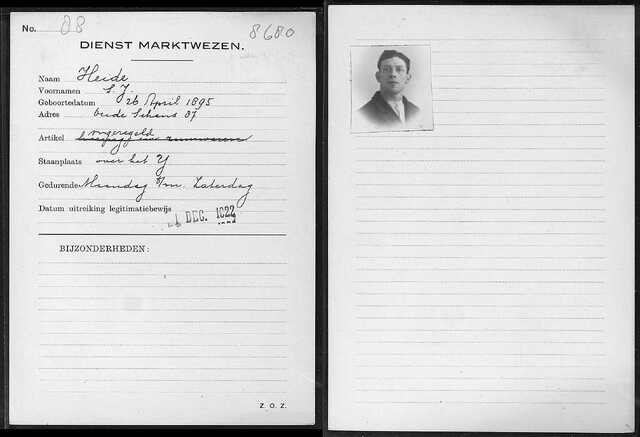 No. 08 8680
DIENST MARKTWEZEN.
Naam Heide
Voornamen S. J.
Geboortedatum 26 April 1895
Adres Oude Schans 37
Artikel ongeregeld
Staanplaats over het Y
Gedurende Maandag t/m. Zaterdag
Datum uitreiking legitimatiebewijs
DEC. 1922
BIJZONDERHEDEN:
Z. O. Z.